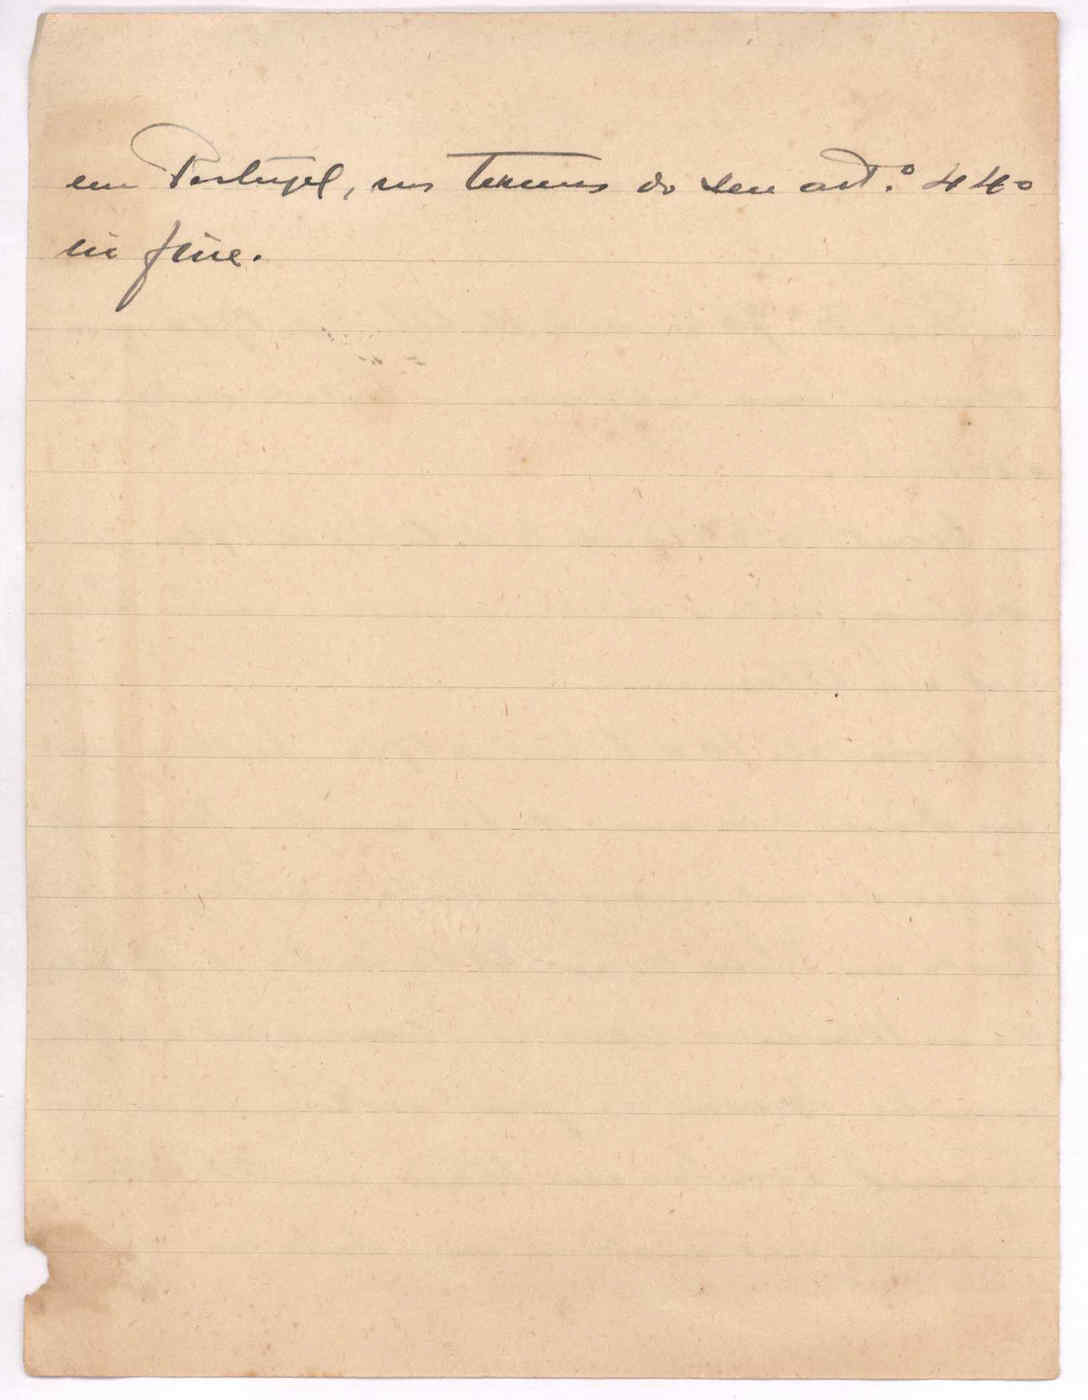 em Portugal, nos termos do seu art.º 440
in fine.